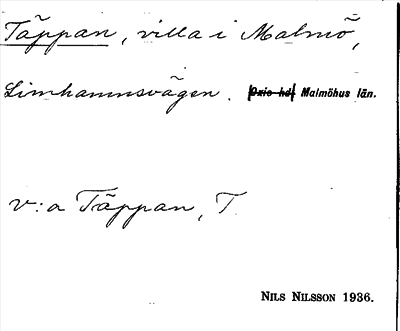 Täppan, villa i Malmö,
Limhamnsvägen. Oxie hd Malmöhus län.
v:a Täppan, T.
NILS NILSSON 1936.